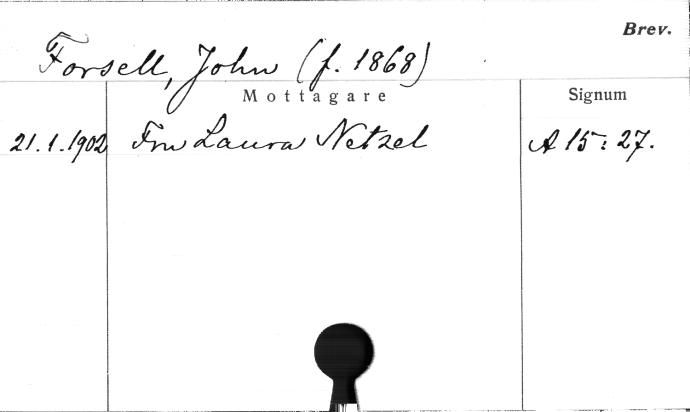 Brev.
Forsell, John (f. 1868)
Mottagare
Signum
21.1.1902 Fru Laura Netzel A 15:27.